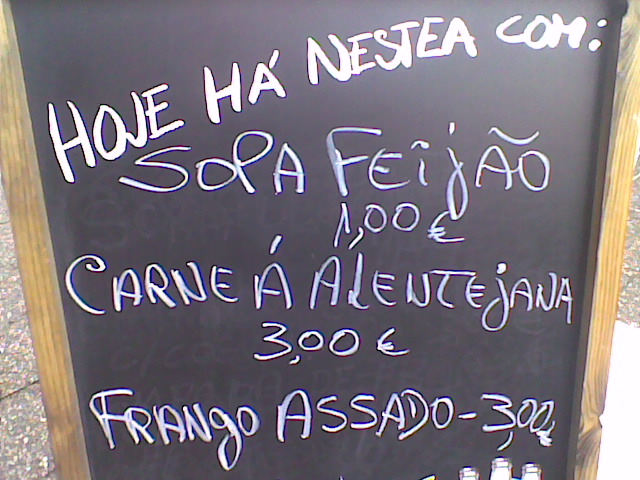 HOJE HÁ NESTEA COM:
SOPA FEIJÃO
1,00 €
CARNE Á ALENTEJANA
3,00 €
FRANGO ASSADO - 3,00€